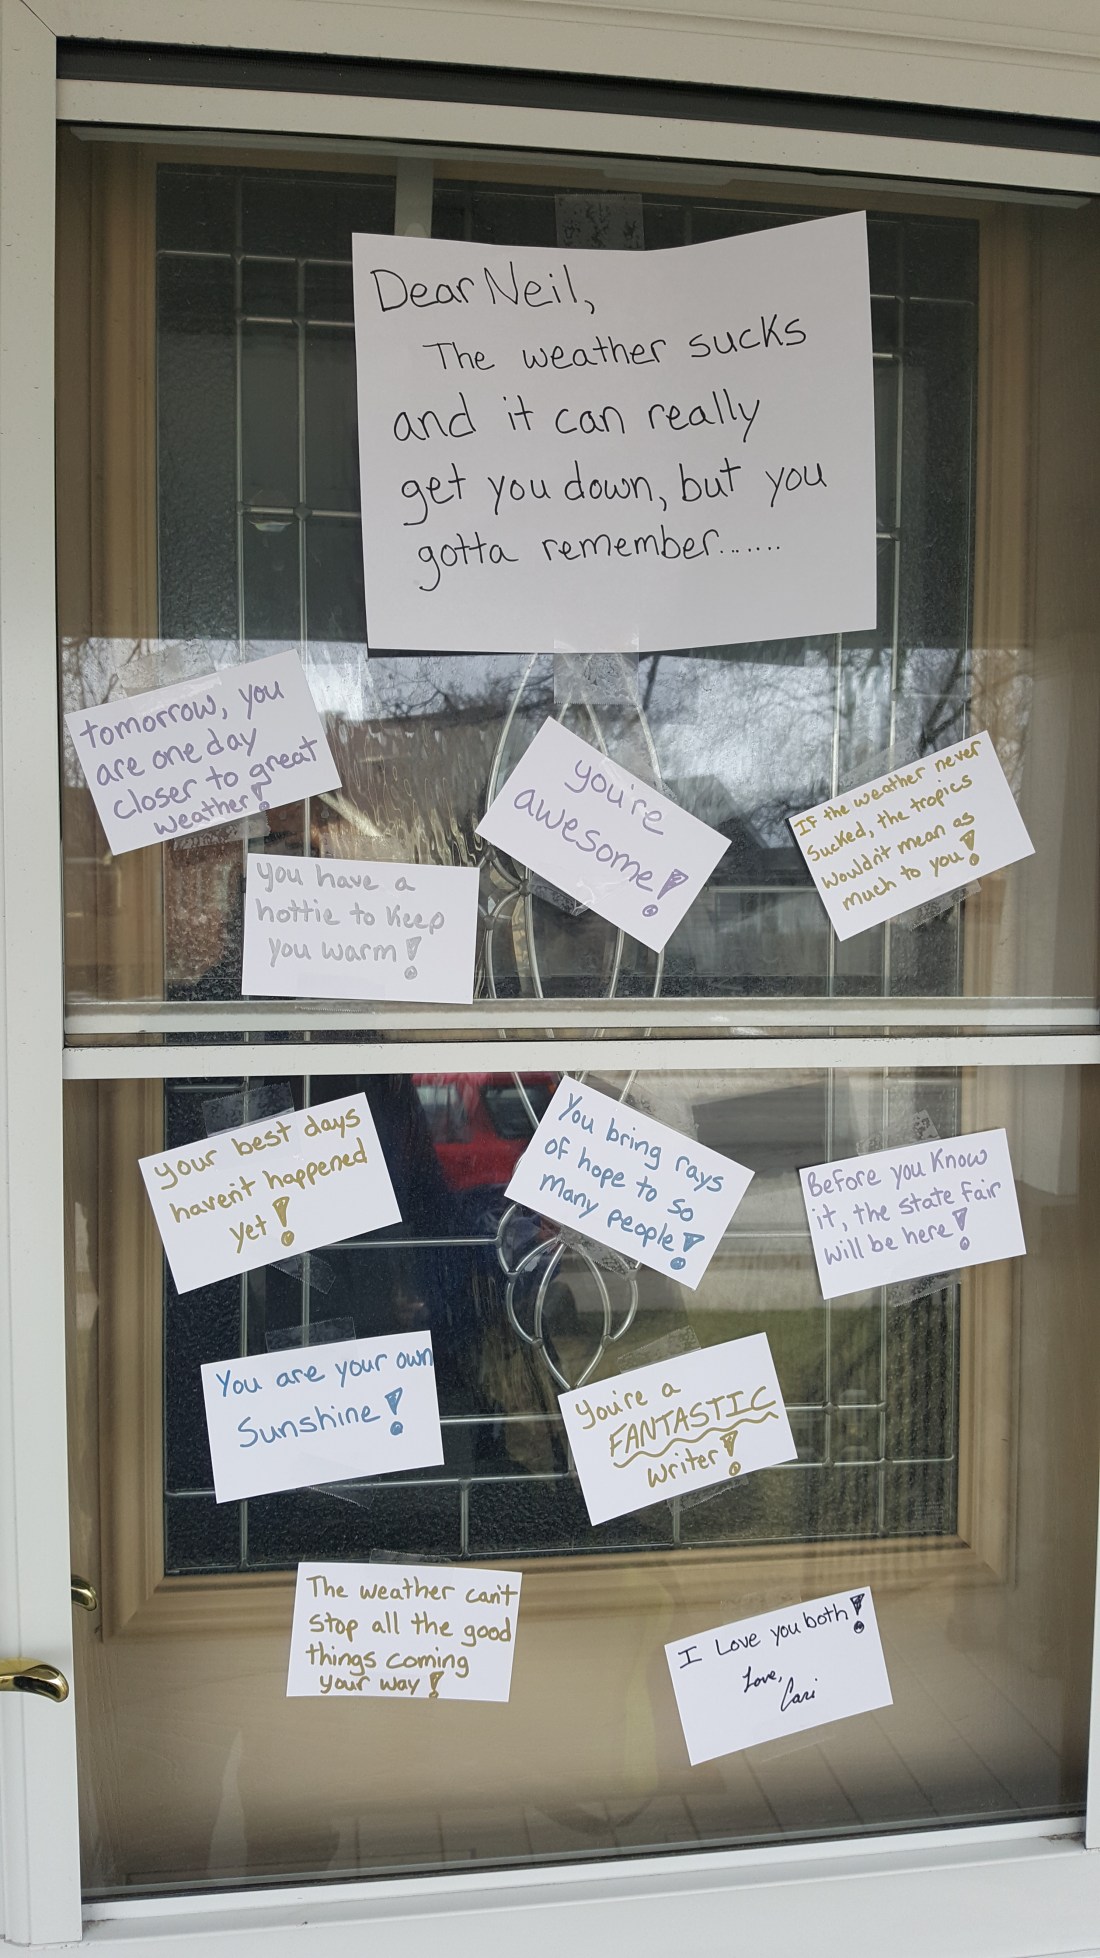 Dear Neil,
The weather sucks
and it can really
get you down, but you
gotta remember.......
tomorrow, you
are one day
closer to great
weather!
you're
awesome!
If the weather never
sucked, the tropics
wouldn't mean as
much to you!
you have a
hottie to keep
you warm!
your best days
haven't happened
yet!
You bring rays
of hope to so
many people!
Before you know
it, the state fair
will be here!
You are your own
Sunshine!
You're a
FANTASTIC
writer!
The weather can't
stop all the good
things coming
your way!
I Love you both!
Love,
Cari